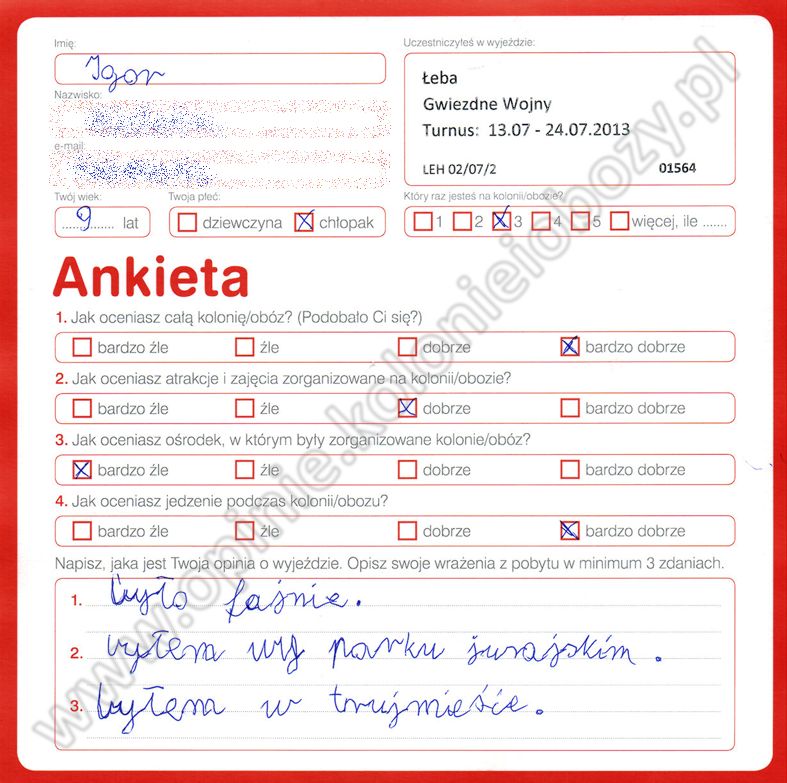 Imię:
Igor
Uczestniczyłeś w wyjeździe:
Łeba
Gwiezdne Wojny
Turnus: 13.07 - 24.07.2013
LEH 02/07/2 01564
Nazwisko:
e-mail:
Twój wiek: Twoja płeć: Który raz jesteś na kolonii/obozie?
9 lat dziewczyna chłopak 1 2 3 4 5 więcej, ile .......
Ankieta
1. Jak oceniasz całą kolonię/obóz? (Podobało Ci się?)
bardzo źle źle dobrze bardzo dobrze
2. Jak oceniasz atrakcje i zajęcia zorganizowane na kolonii/obozie?
bardzo źle źle dobrze bardzo dobrze
3. Jak oceniasz ośrodek, w którym były zorganizowane kolonie/obóz?
bardzo źle źle dobrze bardzo dobrze
4. Jak oceniasz jedzenie podczas kolonii/obozu?
bardzo źle źle dobrze bardzo dobrze
Napisz, jaka jest Twoja opinia o wyjeździe. Opisz swoje wrażenia z pobytu w minimum 3 zdaniach.
1. było fajnie.
2. byłem w parku jurajskim.
3. byłem w trujmieście.
www.opinie.kolonieiobozy.pl